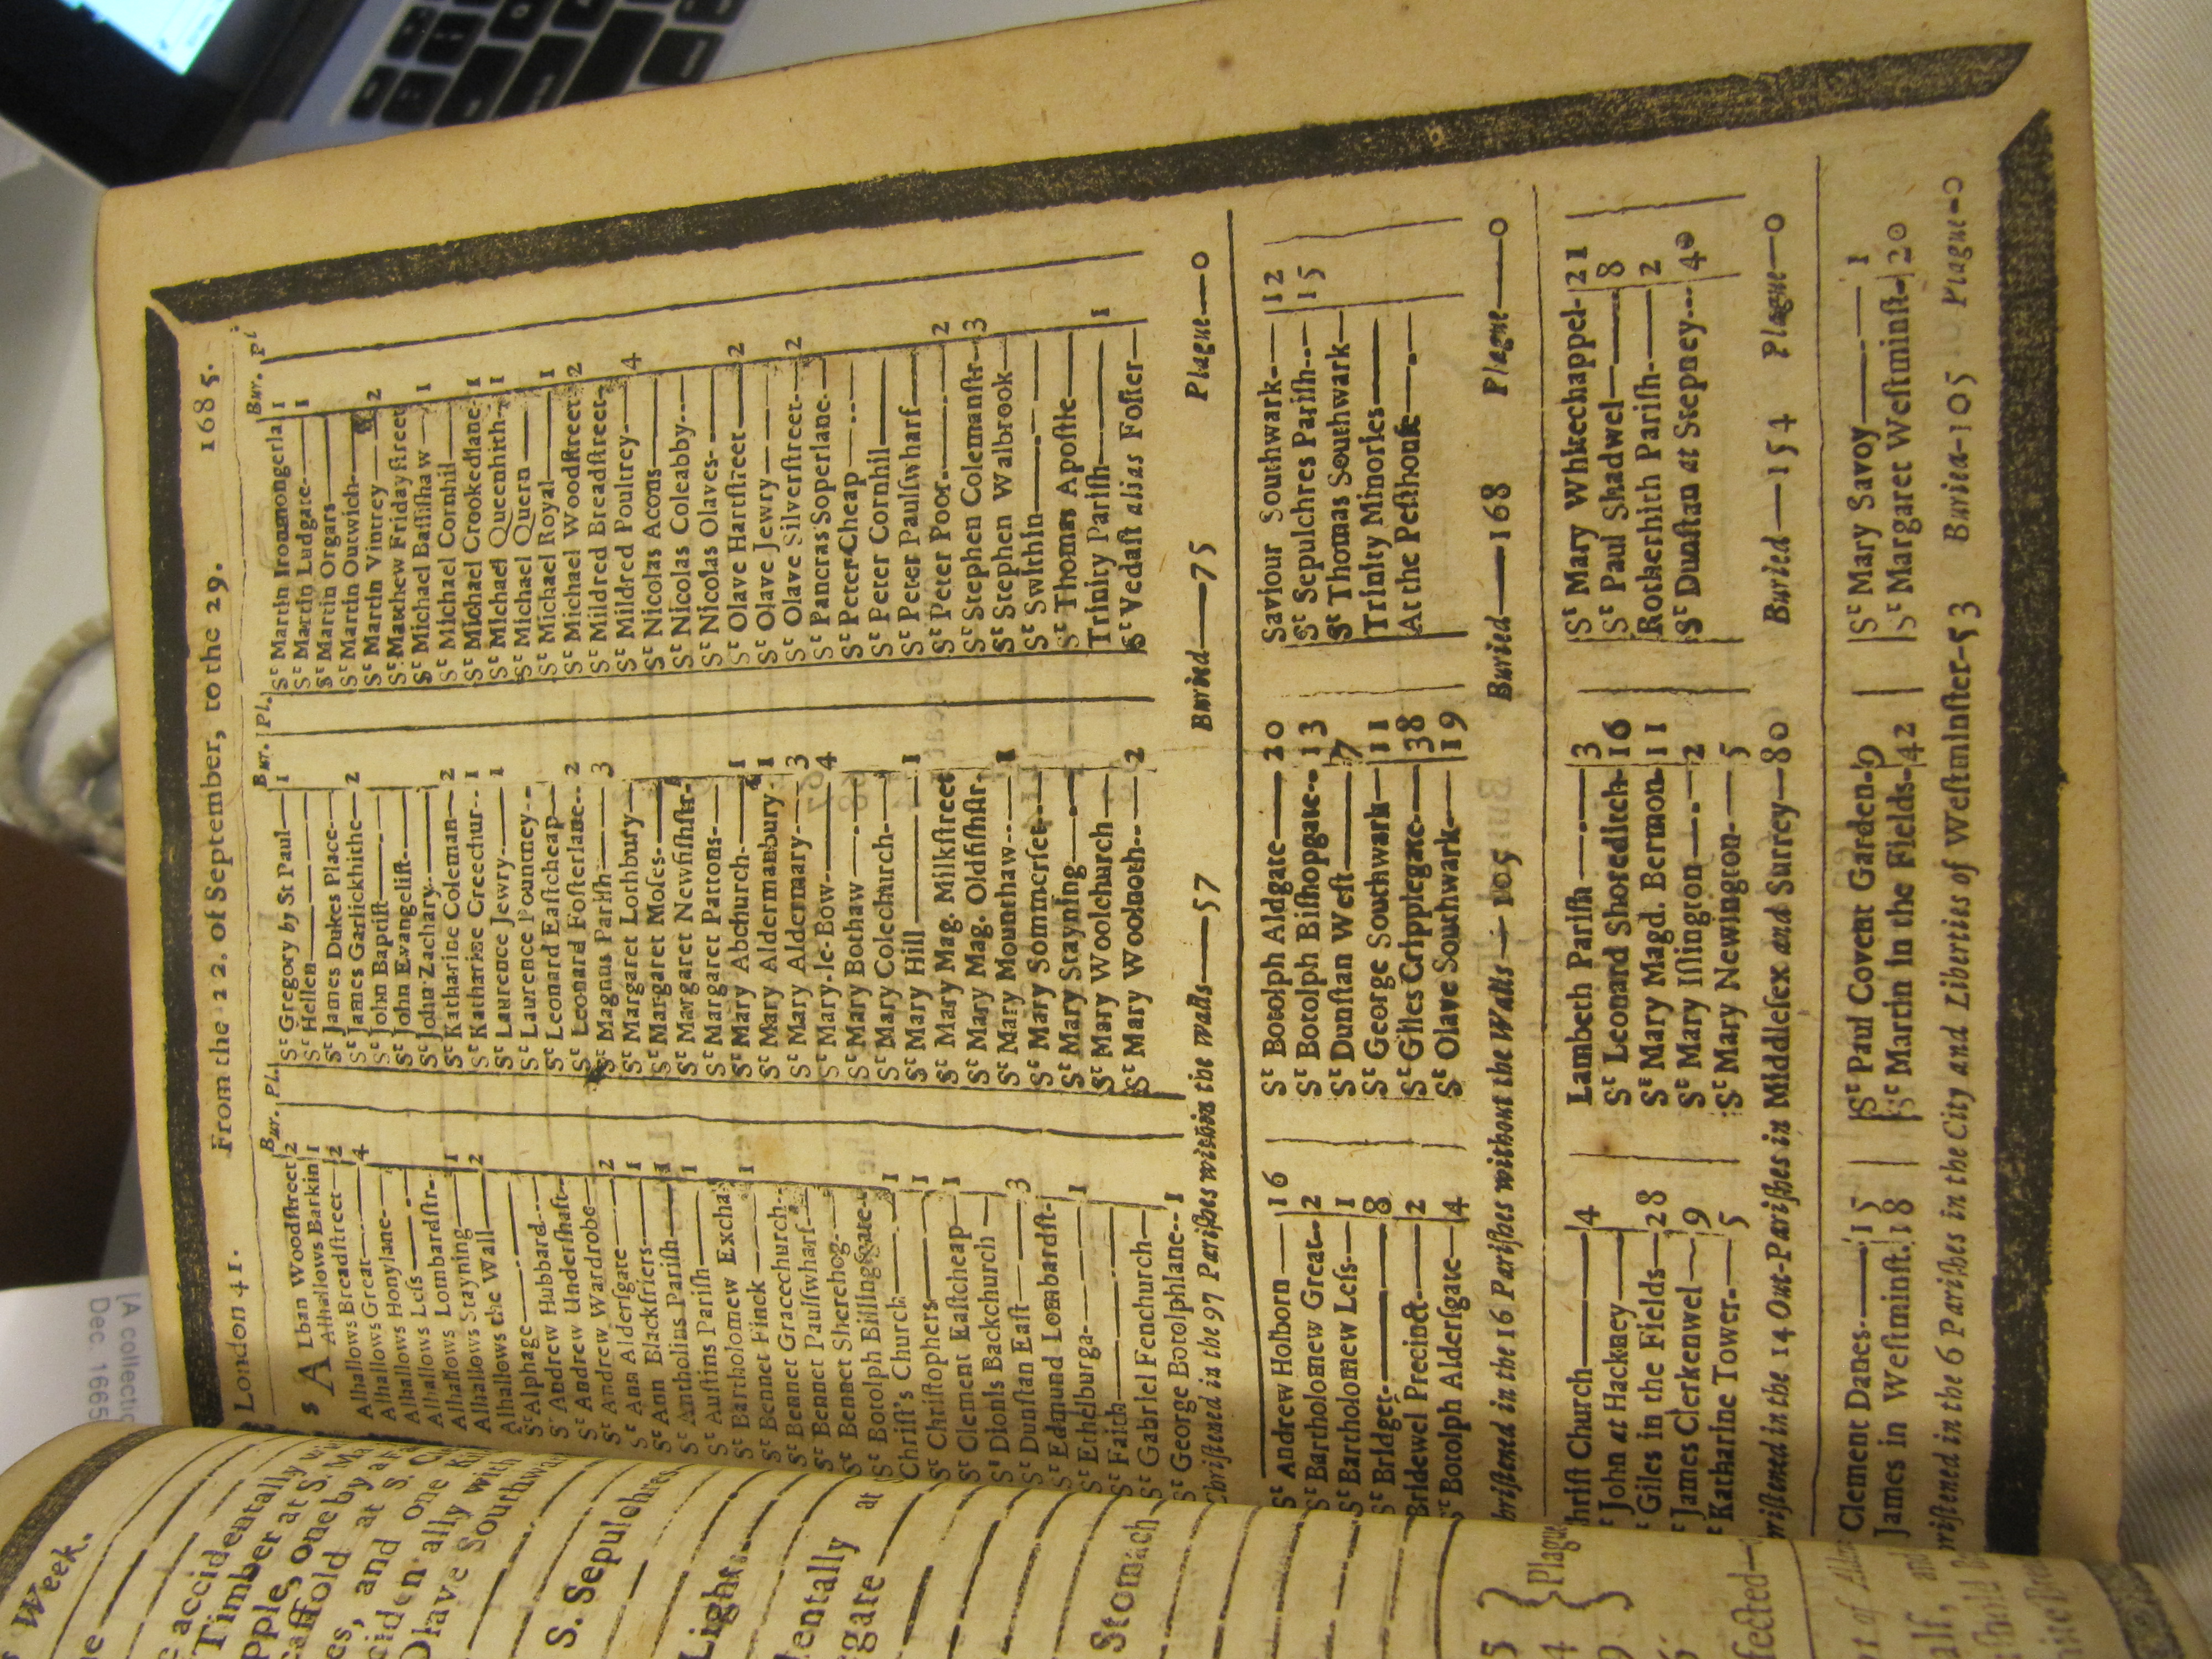 London 41. From the 22. of September, to the 29. 1685.
Bur. Pl.
St ALban Woodstreet 2
Alhallows Barkin 1
Alhallows Breadstreet— 2
Alhallows Great— 4
Alhallows Honylane—
Alhallows Less—
Alhallows Lombardstr- 1
Alhallows Stayning— 2
Alhallows the Wall—
St Alphage—
St Andrew Hubbard—
St Andrew Undershaft—
St Andrew Wardrobe— 2
St Ann Aldersgate— 1
St Ann Blackfriers— 1
St Antholins Parish— 1
St Austins Parish—
St Bartholomew Excha. 1
St Bennet Finck—
St Bennet Gracechurch—
St Bennet Paulswharf—
St Bennet Sherehog—
St Botolph Billingsgate- 1
Christ's Church— 1
St Christophers— 1
St Clement Eastcheap
St Dionis Backchurch— 3
St Dunstan East— 1
St Edmund Lombardst-
St Ethelburga—
St Faith—
St Gabriel Fenchurch—
St George Botolphlane-- 1
Bur. Pl.
St Gregory by St Paul— 1
St Hellen—
St James Dukes Place— 2
St James Garlickhithe—
St John Baptist—
St John Evangelist—
St John Zachary—
St Katharine Coleman— 2
St Katharine Creechur-- 1
St Laurence Jewry— 1
St Laurence Pountney--
St Leonard Eastcheap— 2
St Leonard Fosterlane-- 3
St Magnus Parish—
St Margaret Lothbury—
St Margaret Moses—
St Margaret Newfishstr-
St Margaret Pattons—
St Mary Abchurch— 1
St Mary Aldermanbury- 1
St Mary Aldermary— 3
St Mary-le-Bow— 4
St Mary Bothaw—
St Mary Colechurch—
St Mary Hill— 1
St Mary Mag. Milkstreet
St Mary Mag. Oldfishstr-
St Mary Mounthaw-- 1
St Mary Sommerset—
St Mary Stayning—
St Mary Woolchurch—
St Mary Woolnoth-- 2
Bur. Pl.
St Martin Ironmongerla. 1
St Martin Ludgate— 1
St Martin Orgars—
St Martin Outwich—
St Martin Vintrey— 2
St Matthew Fridaystreet
St Michael Bassishaw— 1
St Michael Cornhil—
St Michael Crookedlane- 1
St Michael Queenhith- 1
St Michael Quern—
St Michael Royal— 1
St Michael Woodstreet- 2
St Mildred Breadstreet-
St Mildred Poultrey— 4
St Nicolas Acons—
St Nicolas Coleabby--
St Nicolas Olaves-
St Olave Hartstreet— 2
St Olave Jewry—
St Olave Silverstreet— 2
St Pancras Soperlane—
St Peter Cheap—
St Peter Cornhil—
St Peter Paulswharf—
St Peter Poor— 2
St Stephen Colemanstr- 3
St Stephen Walbrook—
St Swithin—
St Thomas Apostle—
Trinity Parish— 1
St Vedast alias Foster—
Christned in the 97 Parishes within the Walls—57 Buried—75 Plague—0
St Andrew Holborn— 16
St Bartholomew Great— 2
St Bartholomew Less— 1
St Bridget— 8
Bridewel Precinct— 2
St Botolph Aldersgate— 4
St Botolph Aldgate— 20
St Botolph Bishopgate-- 13
St Dunstan West— 7
St George Southwark— 11
St Giles Cripplegate— 38
St Olave Southwark— 19
Saviour Southwark— 12
St Sepulchres Parish— 15
St Thomas Southwark—
Trinity Minories—
At the Pesthouse—
hristned in the 16 Parishes without the Walls—105 Buried—168 Plague—0
hrist Church— 4
t John at Hackney—
t Giles in the Fields— 28
t James Clerkenwel— 9
t Katharine Tower— 5
Lambeth Parish— 3
St Leonard Shoreditch- 16
St Mary Magd. Bermon- 11
St Mary Islington— 2
St Mary Newington- 5
St Mary Whitechappel- 21
St Paul Shadwel— 8
Rotherhith Parish— 2
St Dunstan at Stepney--- 40
ristned in the 14 Out-Parishes in Middlesex and Surrey—80 Buried—154 Plague—0
Clement Danes— 15
James in Westminst. 18
St Paul Covent Garden- 9
St Martin in the Fields- 42
St Mary Savoy— 1
St Margaret Westminst- 20
ristned in the 6 Parishes in the City and Liberties of Westminster-53 Buried-105 Plague-0
Week.
accidentally
Timber at S.
pple, one by a
caffold at S.
es, and one
Olave Southwa
S. Sepulchres
Light
dentally at
gate
Stomach
Plague
fected—
|A collectio
Dec. 1665